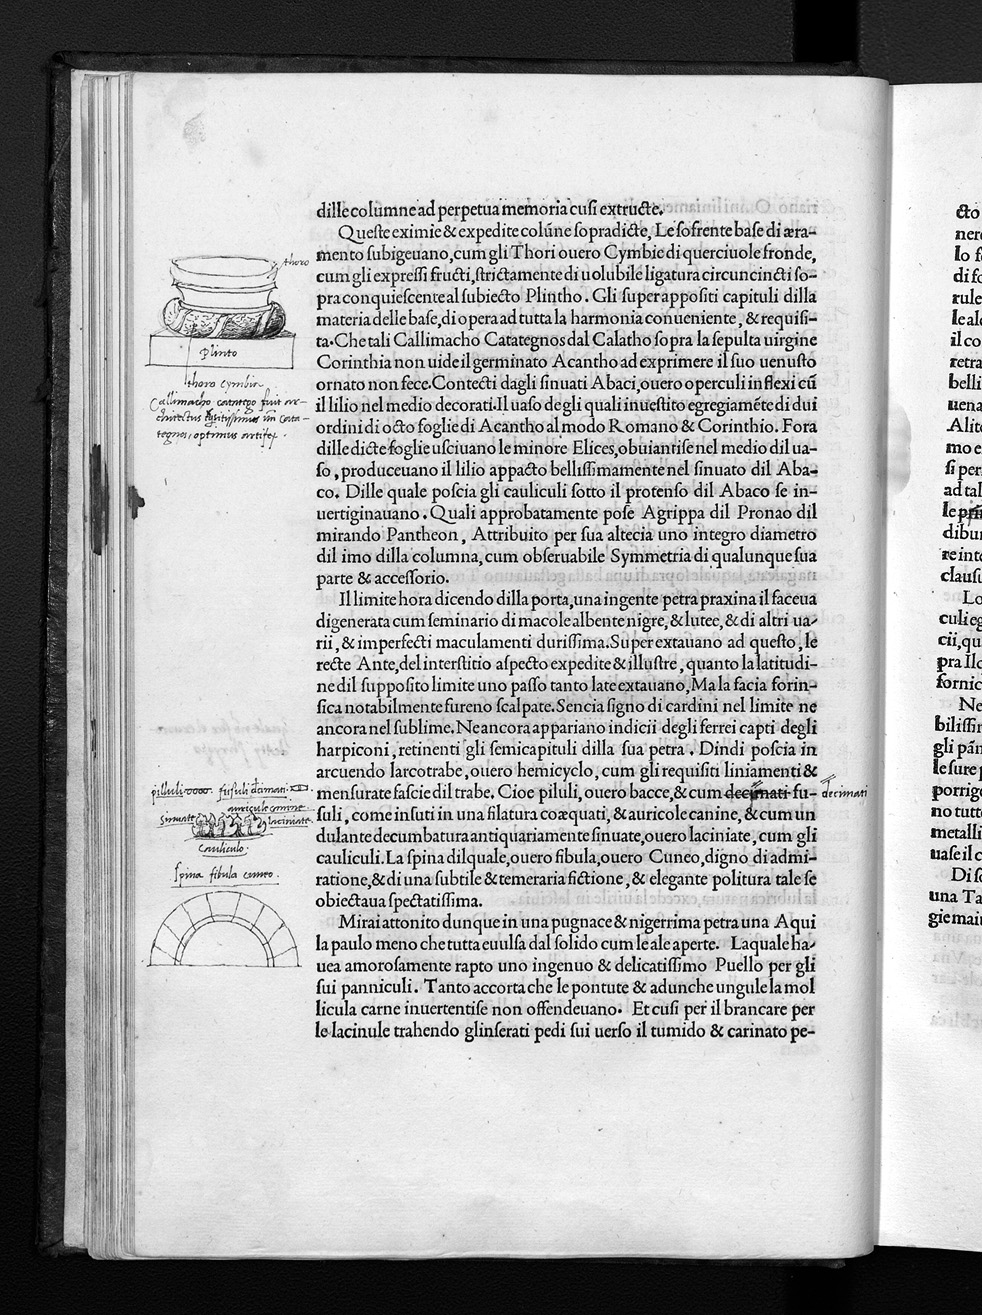 dille colũmne ad perpetua memoria cusi extructe.
Queste eximie & expedite colũne sopradicte, Le sofrente base di æra-
mento subigeuano, cum gli Thori ouero Cymbie di querciuole fronde,
cum gli expressi fructi, strictamente di uolubile ligatura circuncincti so-
pra conquiescente al subiecto Plintho. Gli superappositi capituli dilla
materia delle base, di opera ad tutta la harmonia conueniente, & requisi-
ta. Che tali Callimacho Catategnos dal Calatho sopra la sepulta uirgine
Corinthia non uide il germinato Acantho ad exprimere il suo uenusto
ornato non fece. Contecti dagli sinuati Abaci, ouero operculi inflexi cũ
il lilio nel medio decorati. Il uaso degli quali inuestito egregiamẽte di dui
ordini di octo foglie di Acantho al modo Romano & Corinthio. Fora
dille dicte foglie usciuano le minore Elices, obuiantise nel medio dil ua-
so, produceuano il lilio appacto bellissimamente nel sinuato dil Aba-
co. Dille quale poscia gli cauliculi sotto il protenso dil Abaco se in-
uertiginauano. Quali approbatamente pose Agrippa dil Pronao dil
mirando Pantheon, Attribuito per sua altecia uno integro diametro
dil imo dilla columna, cum obseruabile Symmetria di qualunque sua
parte & accessorio.
Il limite hora dicendo dilla porta, una ingente petra praxina il faceua
digenerata cum seminario di macole albente nigre, & lutee, & di altri ua-
rii, & imperfecti maculamenti durissima. Super extauano ad questo, le
recte Ante, del interstitio aspecto expedite & illustre, quanto la latitudi-
ne dil supposito limite uno passo tanto late extauano, Ma la facia forin-
sica notabilmente fureno scalpate. Sencia signo di cardini nel limite ne
ancora nel sublime. Ne ancora appariano indicii degli ferrei capti degli
harpiconi, retinenti gli semicapituli dilla sua petra. Dindi poscia in
arcuendo larcotrabe, ouero hemicyclo, cum gli requisiti liniamenti &
mensurate fascie dil trabe. Cioe piluli, ouero bacce, & cum decimati fu-
suli, come insuti in una filatura coæquati, & auricole canine, & cum un
dulante decumbatura antiquariamente sinuate, ouero laciniate, cum gli
cauliculi. La spina dil quale, ouero fibula, ouero Cuneo, digno di admi-
ratione, & di una subtile & temeraria fictione, & elegante politura tale se
obiectaua spectatissima.
Mirai attonito dunque in una pugnace & nigerrima petra una Aqui
la paulo meno che tutta euulsa dal solido cum le ale aperte. Laquale ha-
uea amorosamente rapto uno ingenuo & delicatissimo Puello per gli
sui panniculi. Tanto accorta che le pontute & adunche ungule la mol
licula carne inuertentise non offendeuano. Et cusi per il brancare per
le lacinule trahendo glinserati pedi sui uerso il tumido & carinato pe-
thoro
Plinto
thoro cymbia
Callimacho fuit ar-
tegnos, optimus artifex.
pilluli fusuli decimati
auricule canine
sinuate laciniate
cauliculo.
spina fibula cuneo.
decimati
cto
nere
di fo
rule
le ale
il co
retra
belli
uena
Alite
mo e
si per
ad tal
dibur
re inte
clausu
Lo
culi eg
cii, qu
pra Ilc
fornic
Ne
bilissir
gli pãn
le sure p
porrige
no tutte
metalli
uase il c
Di so
una Ta
gie main